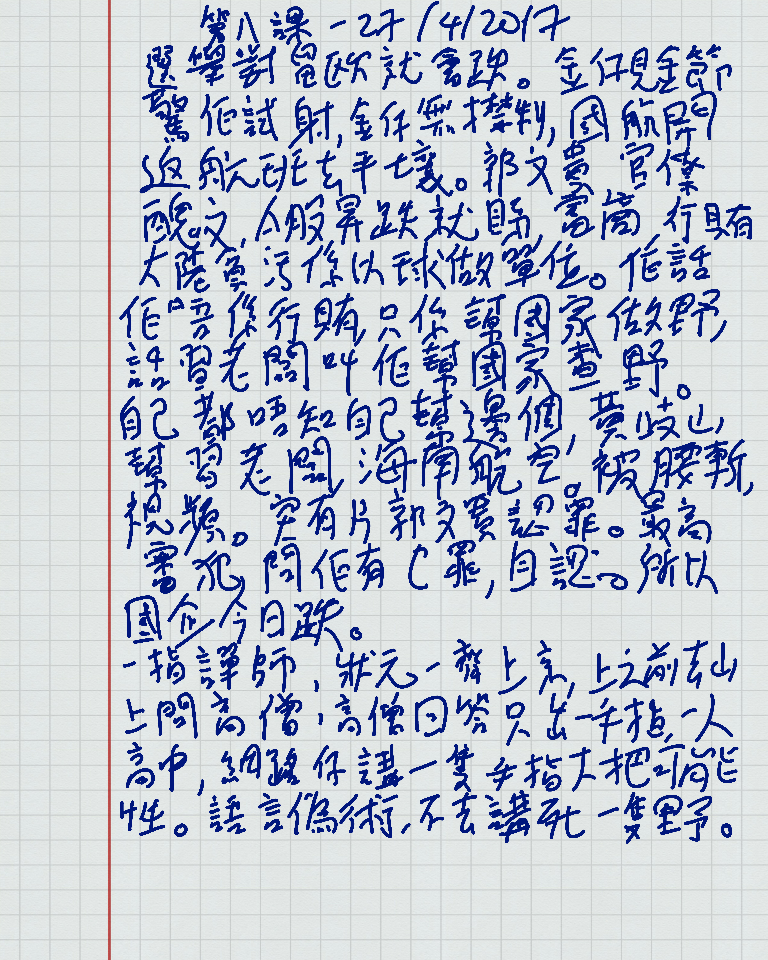 第八課 - 27/4/2017
選舉對留歐就會跌。金仔見金節
驚佢試射,金仔無掣,國航開
返航班去平壤。郭文貴官僚
醜文,人股昇跌就睇,富商行賄
大陸貪污係以球做單位。佢話
佢唔係行賄,只係幫國家做野,
話習老闆叫佢幫國家查野。
自己都唔知自己幫邊個,黃歧山
幫習老闆,海南航空。被腰斬,
視頻。突有片郭文貴認罪。最高
審犯,問佢有乜罪,自認。所以
國企今日跌。
一指譚師,狀元一齊上京,上之前去山
上問高僧,高僧回答只出一手指,一人
高中,網路仔講一隻手指大把可能
性。語言偽術,不去講死一隻野。